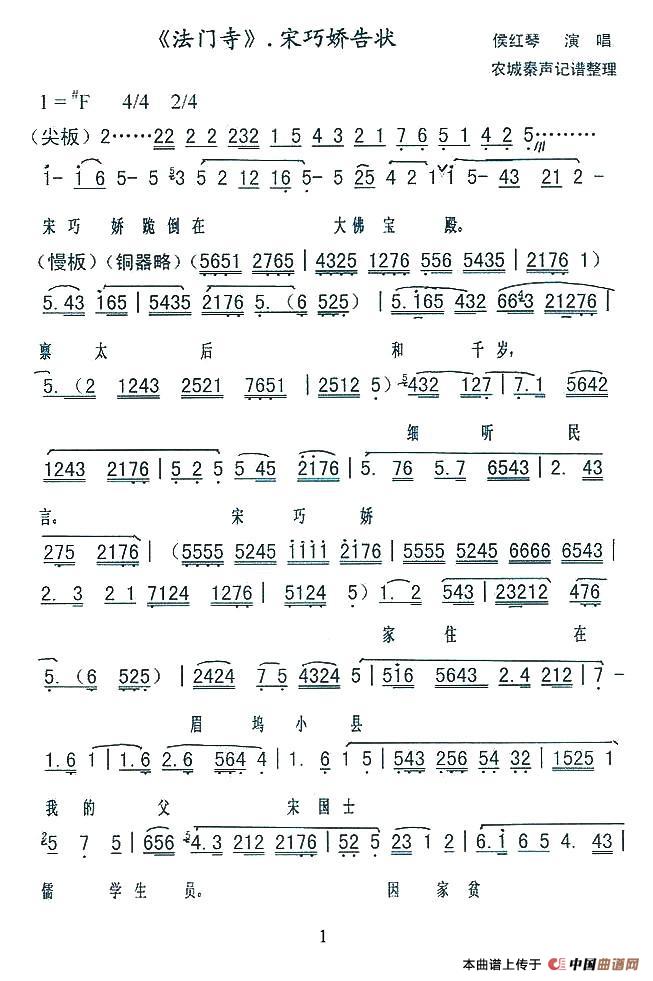 《法门寺》.宋巧娇告状
侯红琴 演 唱
农城秦声记谱整理
1=#F 4/4 2/4
(尖板) 2……22 2 2 232 1 5 4 3 2 1 7 6 5 1 4 2 5………
i- i 6 5- 5 3 5 2 12 16 5- 5 25 4 2 1 i 5- 43 21 2 -
宋巧 娇跪倒在 大佛宝 殿。
(慢板)(铜器略)(5651 2765|4325 1276 556 5435|2176 1)
5.43 i65|5435 2176 5.(6 525)|5.i65 432 6643 21276|
禀太 后 和 千岁,
5.(2 1243 2521 7651|2512 5) 432 127|7.1 5642
细听 民
1243 2176|5 2 5 5 45 2176|5. 76 5.7 6543|2. 43
言。 宋 巧 娇
275 2176|(5555 5245 iiii 2176|5555 5245 6666 6543|
2. 3 2 1 7124 1276|5124 5)1. 2 543|23212 476
家 住 在
5.(6 525)|2424 7 5 4324 5|516 5643 2.4 212|7 -
眉 坞 小 县
1.6 1|1.6 2.4 564 4|1. 6 1 5|543 256 54 32|1525 1
我的 父 宋国士
5 7 5|656 4.3 212 2176|52 5 23 1 2|6.i 6 5 4. 43|
儒 学生 员。 因家贫
1
本曲谱上传于 中国曲谱网